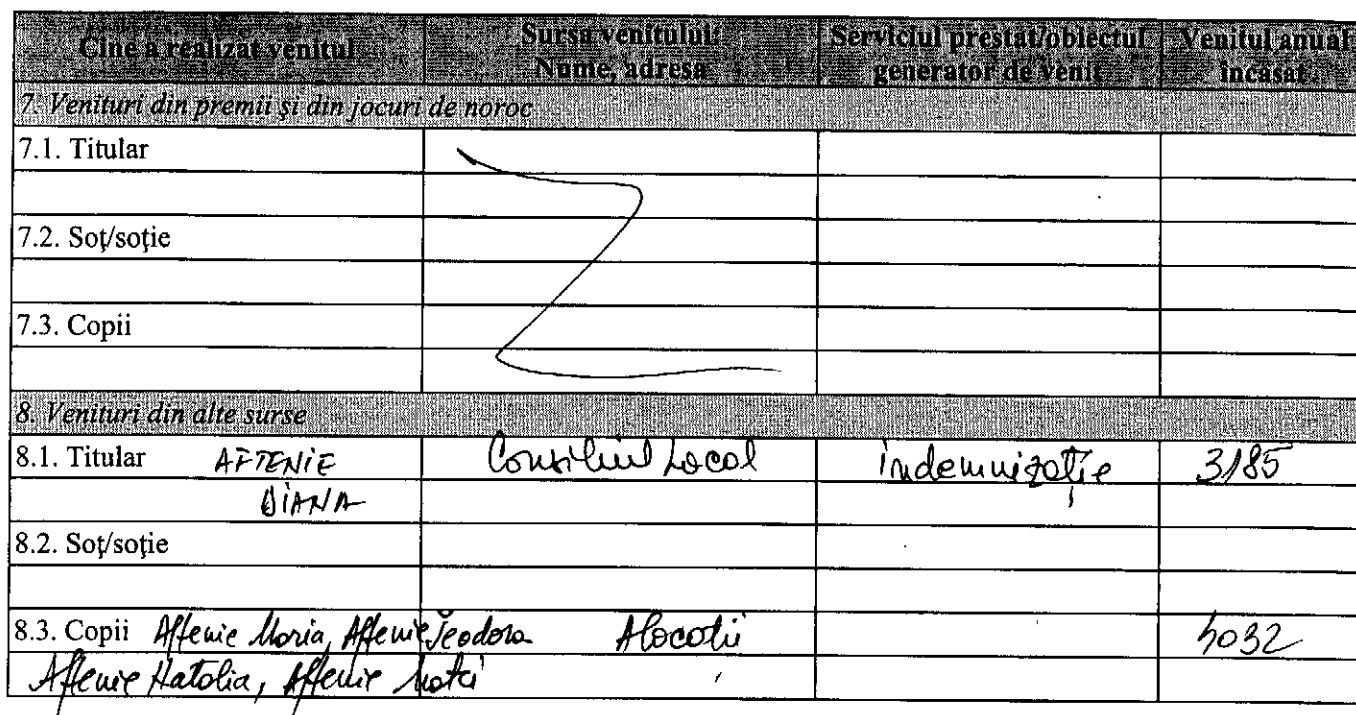 Cine a realizat venitul Sursa venitului: Nume, adresa Serviciul prestat/obiectul generator de venit Venitul anual încasat
7. Venituri din premii şi din jocuri de noroc
7.1. Titular
7.2. Soţ/soţie
7.3. Copii
8. Venituri din alte surse
8.1. Titular AFTENIE Consiliul Local indemnizaţie 3185
DIANA
8.2. Soţ/soţie
8.3. Copii Aftenie Maria, Aftenie Teodora Alocatii 4032
Aftenie Natalia, Aftenie Matei